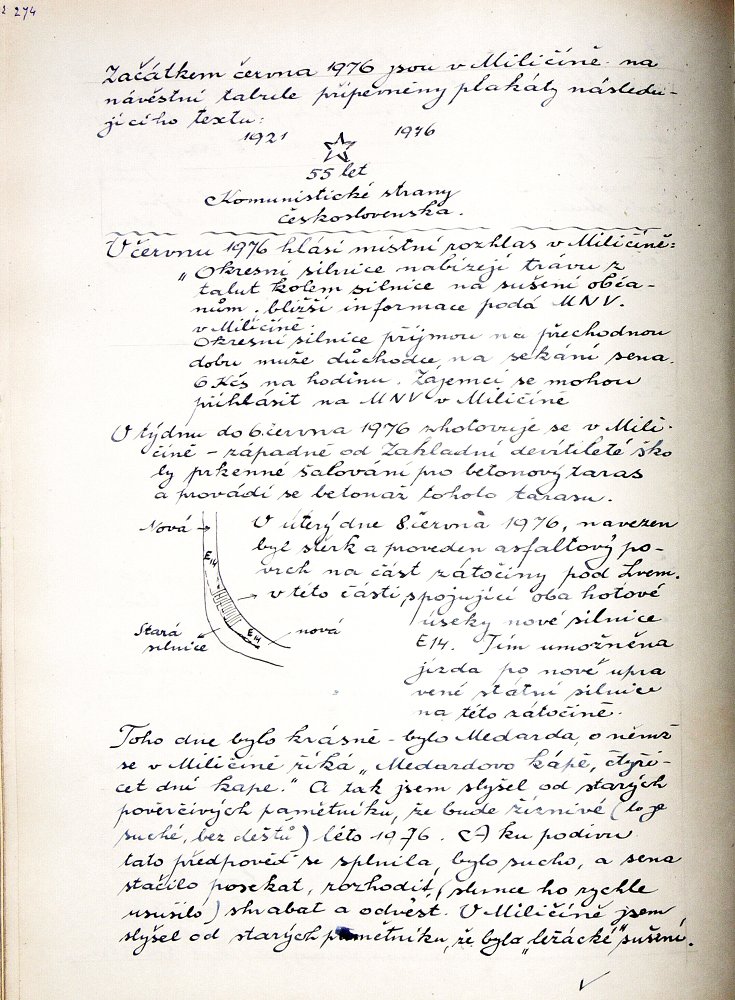 274
Začátkem června 1976 jsou v Miličíně na
návěstní tabule připevněny plakáty následu-
jícího textu:
1921 1976
55 let
Komunistické strany
československa.
V červnu 1976 hlásí místní rozhlas v Miličíně:
"Okresní silnice nabízejí trávu z
talut kolem silnice na sušení obča-
nům. bližší informace podá MNV.
v Miličíně.
Okresní silnice příjmou na přechodnou
dobu muže důchodce, na sekání sena.
6 Kčs na hodinu. Zájemci se mohou
přihlásit na MNV v Miličíně
V týdnu do 6. června 1976 zhotovuje se v Mili-
číně – západně od Základní devítileté ško
ly prkenné šalování pro betonový taras
a provádí se betonáž tohoto tarasu.
Nová
V úterý dne 8. června 1976, navezen
byl štěrk a proveden asfaltový po-
vrch na část zátočiny pod Lvem.
E14
v této části, spojující oba hotové
úseky nové silnice
Stará
silnice
E14
nová
E14. Tím umožněna
jízda po nově upra
vené státní silnice
na této zátočině.
Toho dne bylo krásně – bylo Medarda, o němž
se v Miličíně říká „Medardova kápě, čtyři-
cet dní kape." A tak jsem slyšel od starých
pověrčivých pamětníků, že bude žíznivé (to je
suché, bez deštů) léto 1976. A ku podivu
tato předpověď se splnila, bylo sucho, a sena
stačilo posekat, rozhodit, (slunce ho rychle
usušilo) shrabat a odvést. V Miličíně jsem
slyšel od starých pamětníku, že bylo „ležácké" sušení.